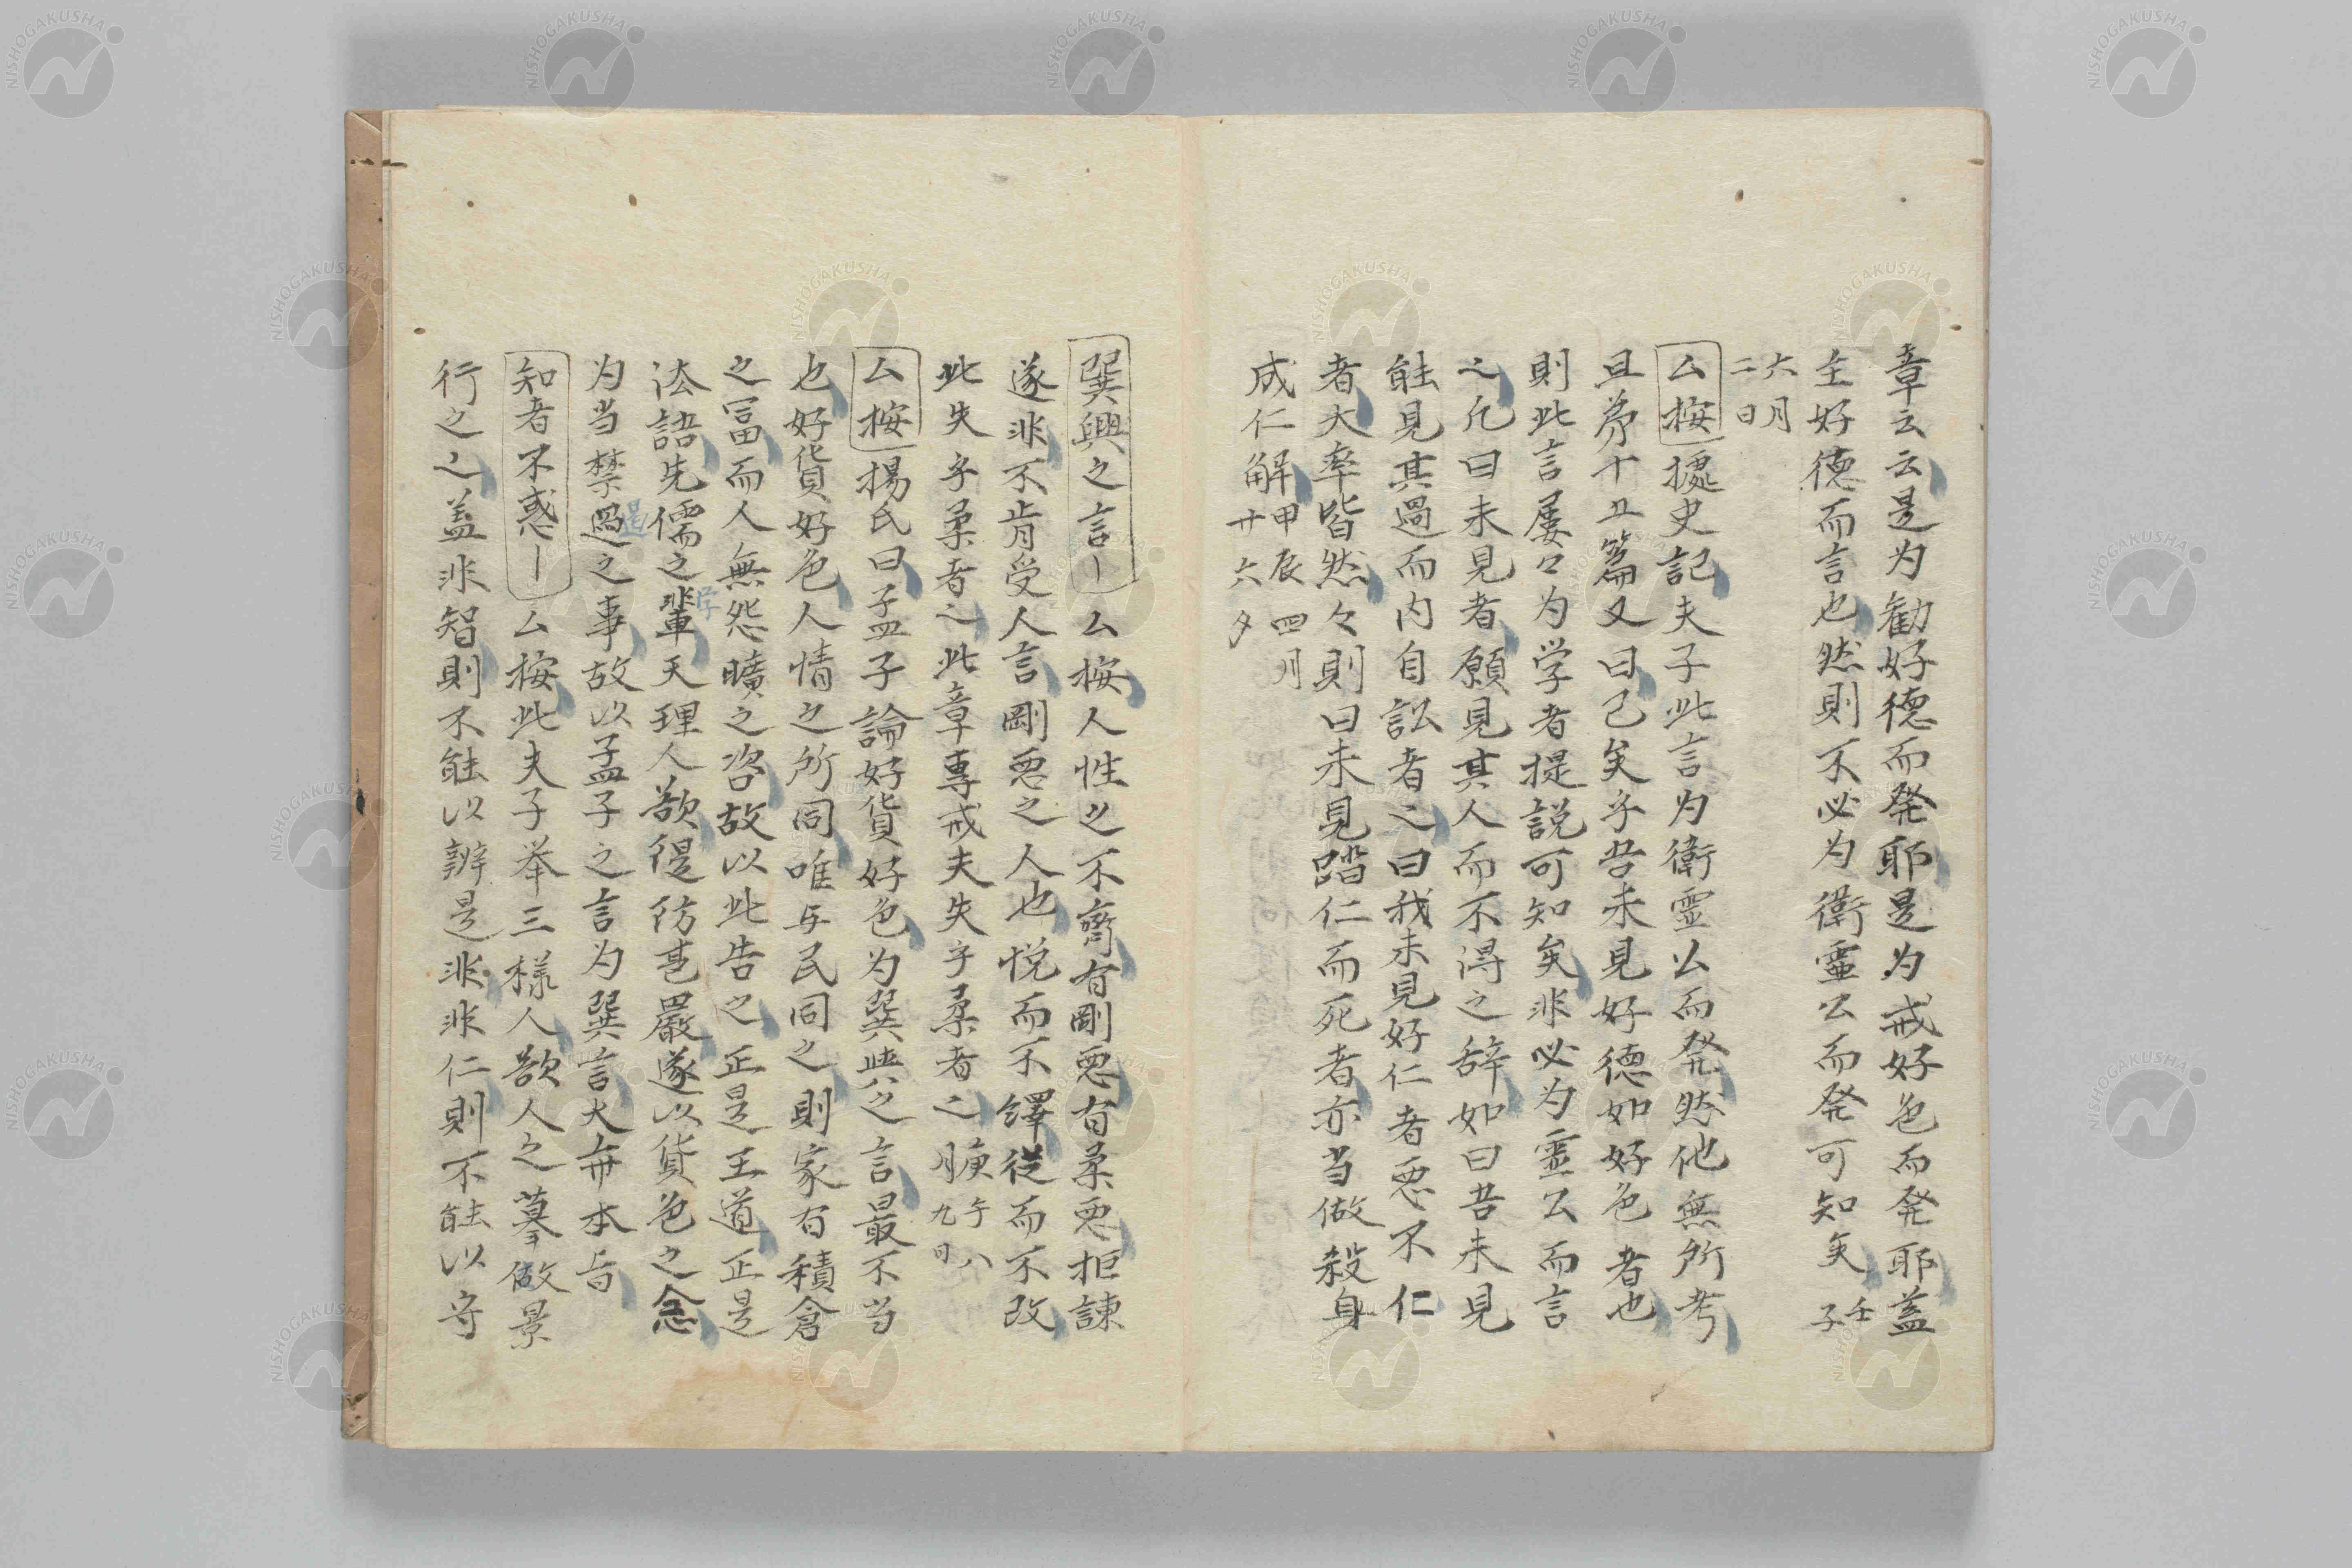 章云云是为勧好徳而発耶是为戒好色而発耶蓋
主好徳而言也然則不必为衛霊公而発可知矣壬子
六月二日
厶按拠史記夫子此言为衛霊公而発然他無所考
且㐧十五篇又曰已矣乎吾未見好徳如好色者也
則此言屡々为学者提説可知矣非必为霊公而言
之凡曰未見者願見其人而不得之辞如曰吾未見
能見其過而内自訟者之曰我未見好仁者悪不仁
者大率皆然々則曰未見蹈仁而死者亦当做殺身
成仁解甲辰四月廿六夕
巽與之言｜厶按人性之不齊有剛悪有柔悪拒諌
遂非不肯受人言剛悪之人也悦而不繹従而不改
此失乎柔者之此章專戒夫失乎柔者之庚午八月九日
厶按揚氏曰孟子論好貨好色为巽與之言最不当
也好貨好色人情之所同唯与民同之則家有積倉
之冨而人無怨曠之咨故以此告之正是王道正是
法語先儒之輩天理人欲隄防甚嚴遂以貨色之念
为当禁過之事故以孟子之言为巽言大非本旨
知者不惑｜厶按此夫子举三様人欲人之摹做景
行之之蓋非智則不能以辨是非非仁則不能以守